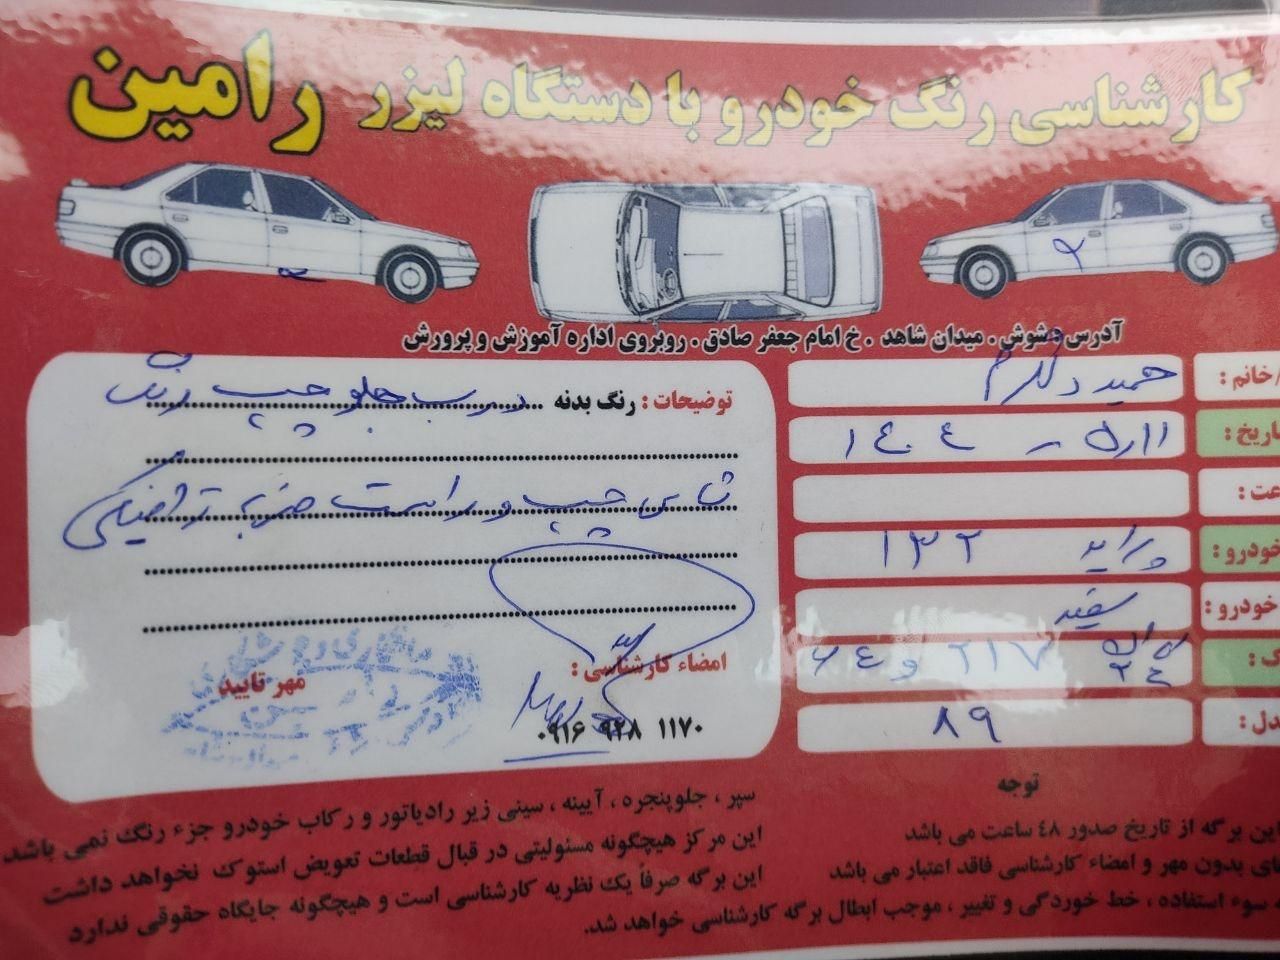 کارشناسی رنگ خودرو با دستگاه لیزر رامین
آدرس: شوش. میدان شاهد. خ امام جعفر صادق. روبروی اداره آموزش و پرورش
/خانم : حمید
اریخ : ۱۴۰۴ - ۵ر۱۱
عت :
خودرو : پراید ۱۳۲
خودرو : سفید
ک : ۶۴ و ۲۱۷ ۲۴
دل : ۸۹
توضیحات : رنگ بدنه درب جلو چپ رنگ
شاسی چپ و راست ضربه ترافیکی
امضاء کارشناسی :
مهر تایید
۰۹۱۶ ۹۲۸ ۱۱۷۰
توجه
ین برگه از تاریخ صدور ۴۸ ساعت می باشد
ای بدون مهر و امضاء کارشناسی فاقد اعتبار می باشد
سوء استفاده ، خط خوردگی و تغییر ، موجب ابطال برگه کارشناسی خواهد شد.
سپر ، جلوپنجره ، آیینه ، سینی زیر رادیاتور و رکاب خودرو جزء رنگ نمی باشد
این مرکز هیچگونه مسئولیتی در قبال قطعات تعویض استوک نخواهد داشت
این برگه صرفاً یک نظریه کارشناسی است و هیچگونه جایگاه حقوقی ندارد